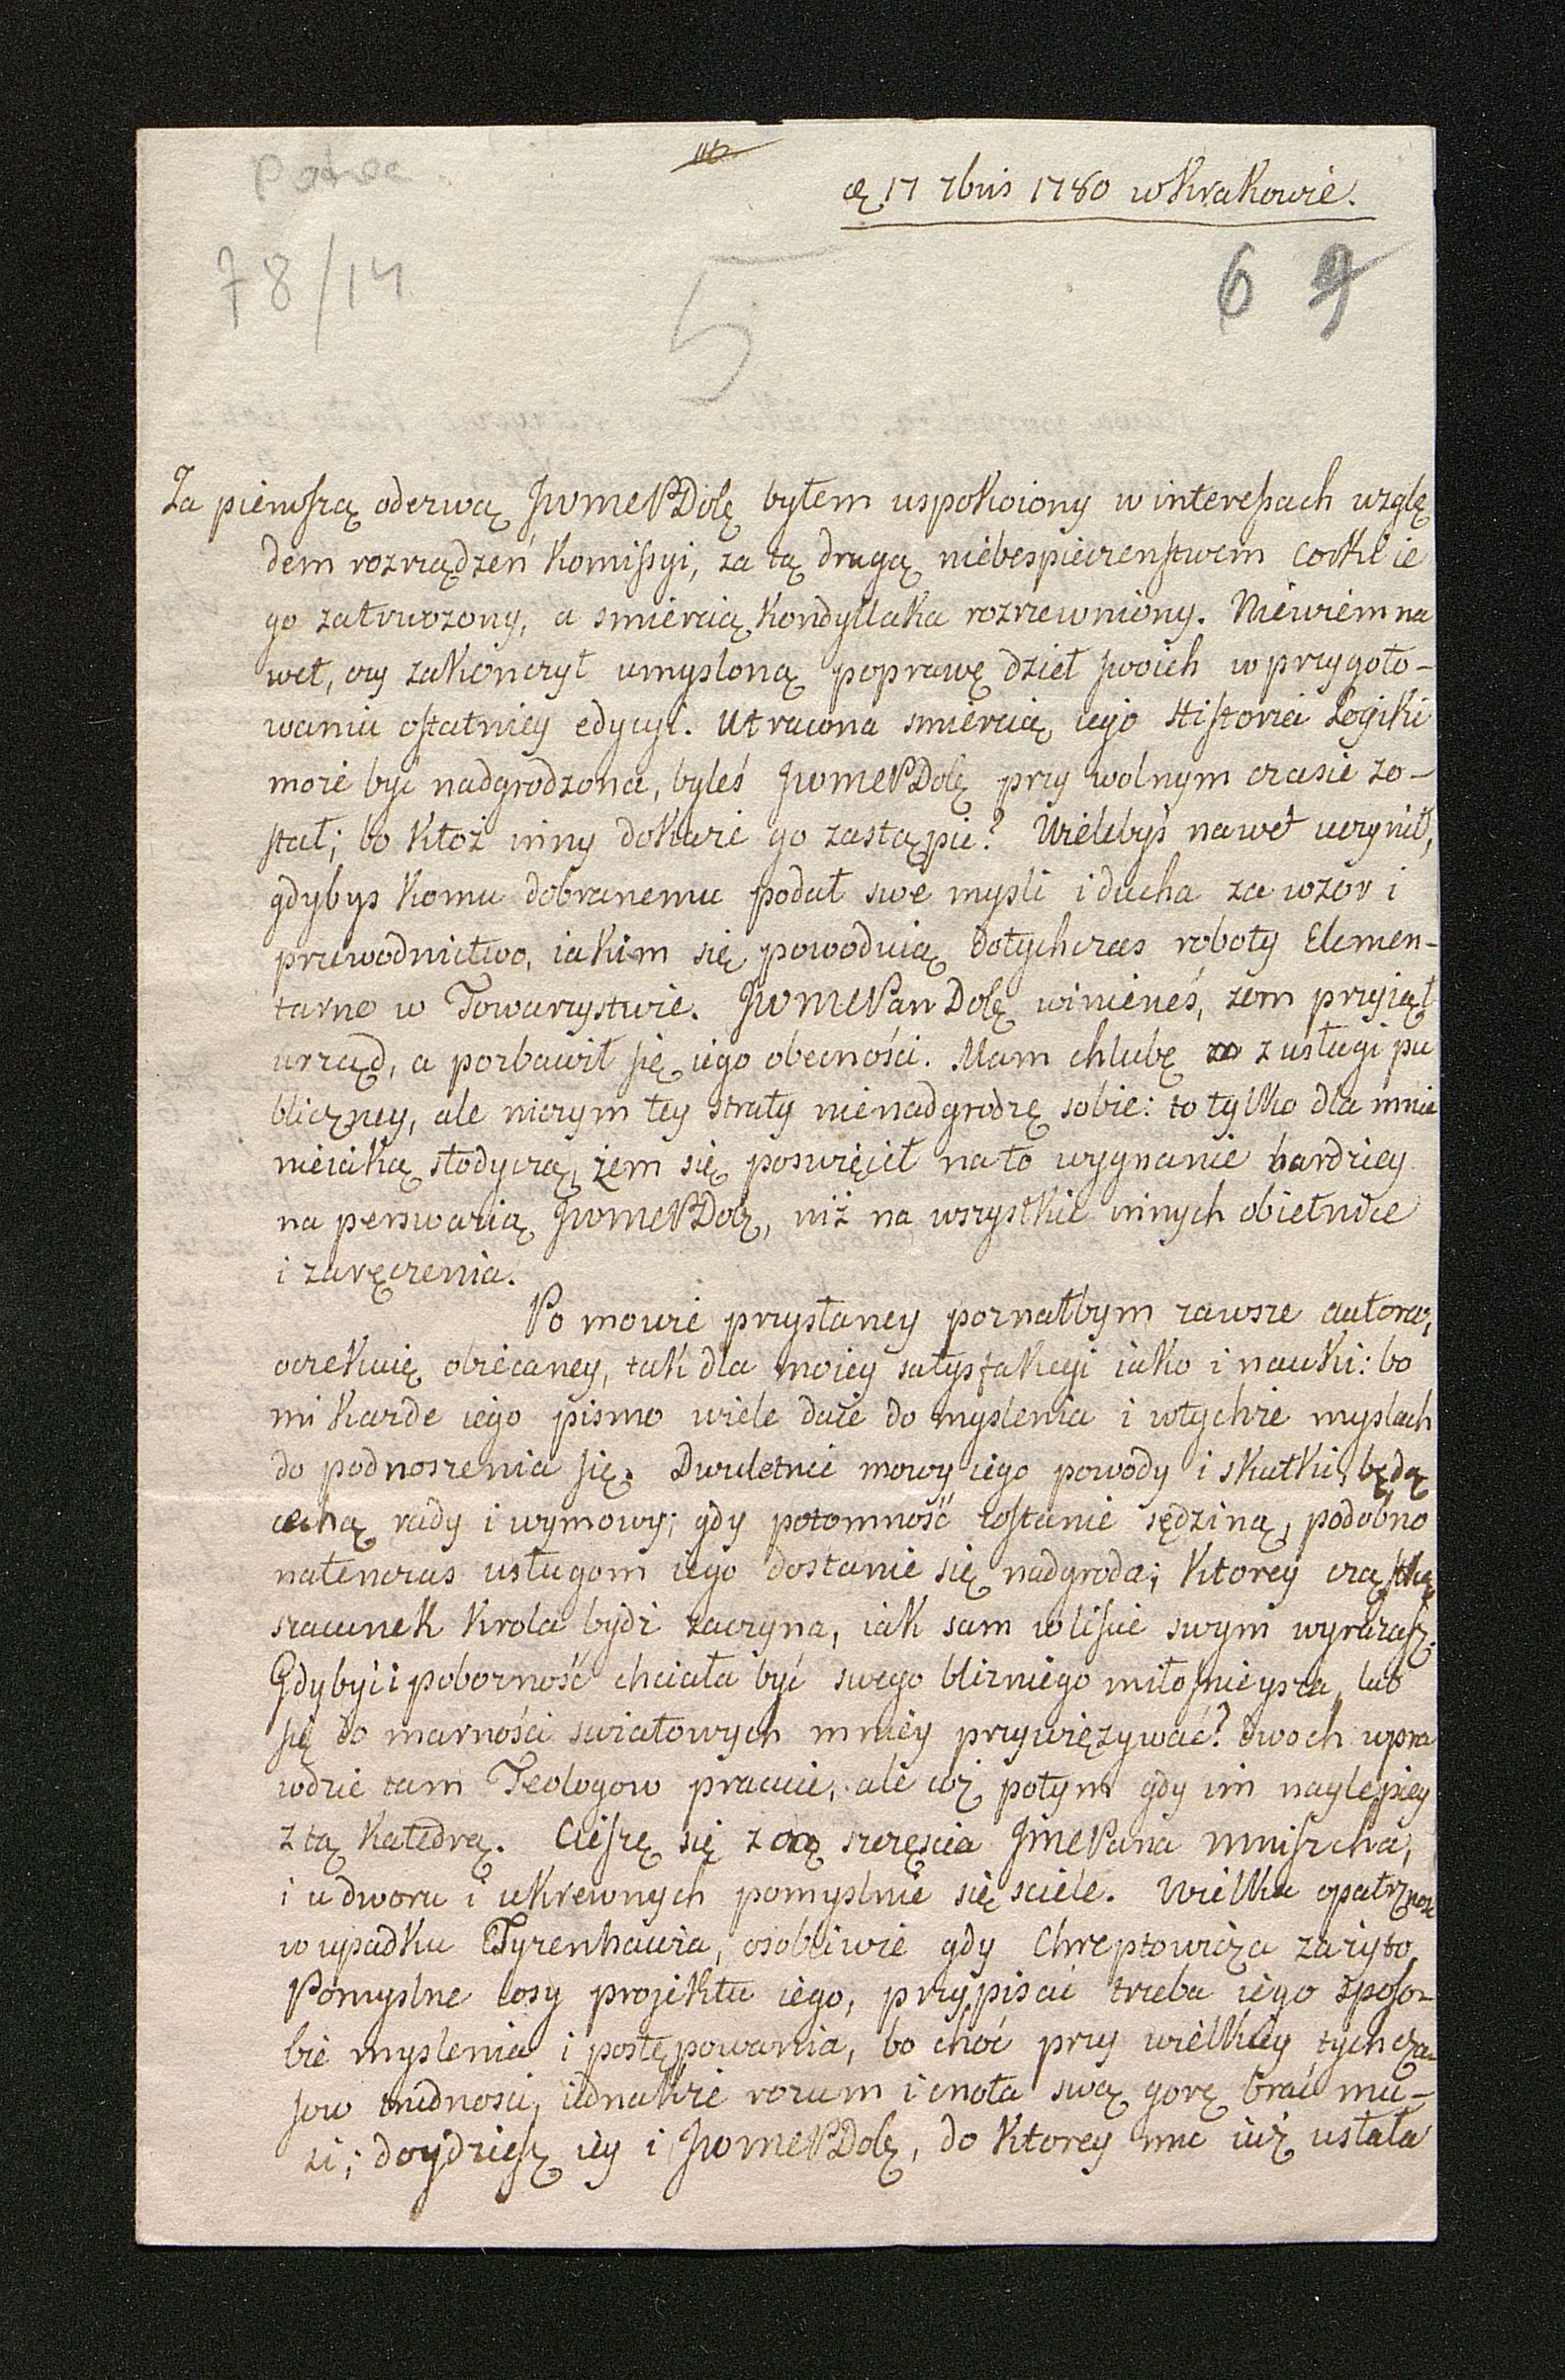 Potoc
116
d. 17 7bris 1780 w Krakowie.
78/14
5
6 9
Za pierwszą odezwą JWMePDobę byłem uspokoiony w interessach wzglę
dem rozrządzeń Komissyi, za tą drugą niebespieczenstwem Corki ie
go zatrwożony, a smiercią Kondyllaka rozrzewniony. Niewiem na
wet, czy zakonczył umysloną poprawę dzieł swoich w przygoto-
waniu ostatniey edycyi. Utracona smiercią iego Historia Logiki
może być nadgrodzona, byleś JWMePDobę przy wolnym czasie zo-
stał; bo ktoż inny dokaże go zastąpić? Wielebyś nawet uczynił,
gdybys komu dobranemu podał swe mysli i ducha za wzór i
przewodnictwo, iakim się powoduią dotychczas roboty Elemen-
tarne w Towarzystwie. JWMePan Dobę winieneś, żem przyiął
urząd, a pozbawił się iego obecności. Mam chlubę z usługi pu
bliczney, ale niczym tey straty nienadgrodzę sobie: to tylko dla mnie
nieiaką słodyczą, żem się poswięcił na to wygnanie bardziey
na perswazią JWMePDobę, niż na wszystkie innych obietnice
i zaręczenia.
Po mowie przysłaney poznałbym zawsze autora,
oczekuię obiecaney, tak dla moiey satysfakcyi iako i nauki: bo
mi każde iego pismo wiele daie do myslenia i w tychże myslach
do podnoszenia się. Dwuletnie mowy iego powody i skutki, będą
cechą rady i wymowy; gdy potomność zostanie sędziną, podobno
natenczas usługom iego dostanie się nadgroda; ktorey cząstką
szacunek Krola bydź zaczyna, iak sam w liscie swym wyrażasz.
Gdybyć i pobożność chciała być swego blizniego miłosnieysza, lub
się do marności swiatowych mniey przywięzywać? dwoch wpra
wdzie tam Teologow pracuie, ale coż potym gdy im naylepiey
z tą Katedrą. Cieszę się z szczęscia JMePana Mniszcha,
i u dworu i u krewnych pomyslnie się sciele. Wielka opatrznosc
w upadku Tyzenhauza, osobliwie gdy Chreptowicza zażyto,
Pomyslne losy projektu iego, przypisać trzeba iego sposo-
bie myslenia i postępowania, bo choć przy wielkiey tych cza-
sow trudnosci, iednakże rozum i cnota swą gorę brać mu-
si; doydziesz iey i JWMePDobę, do ktorey mu iuż ustała